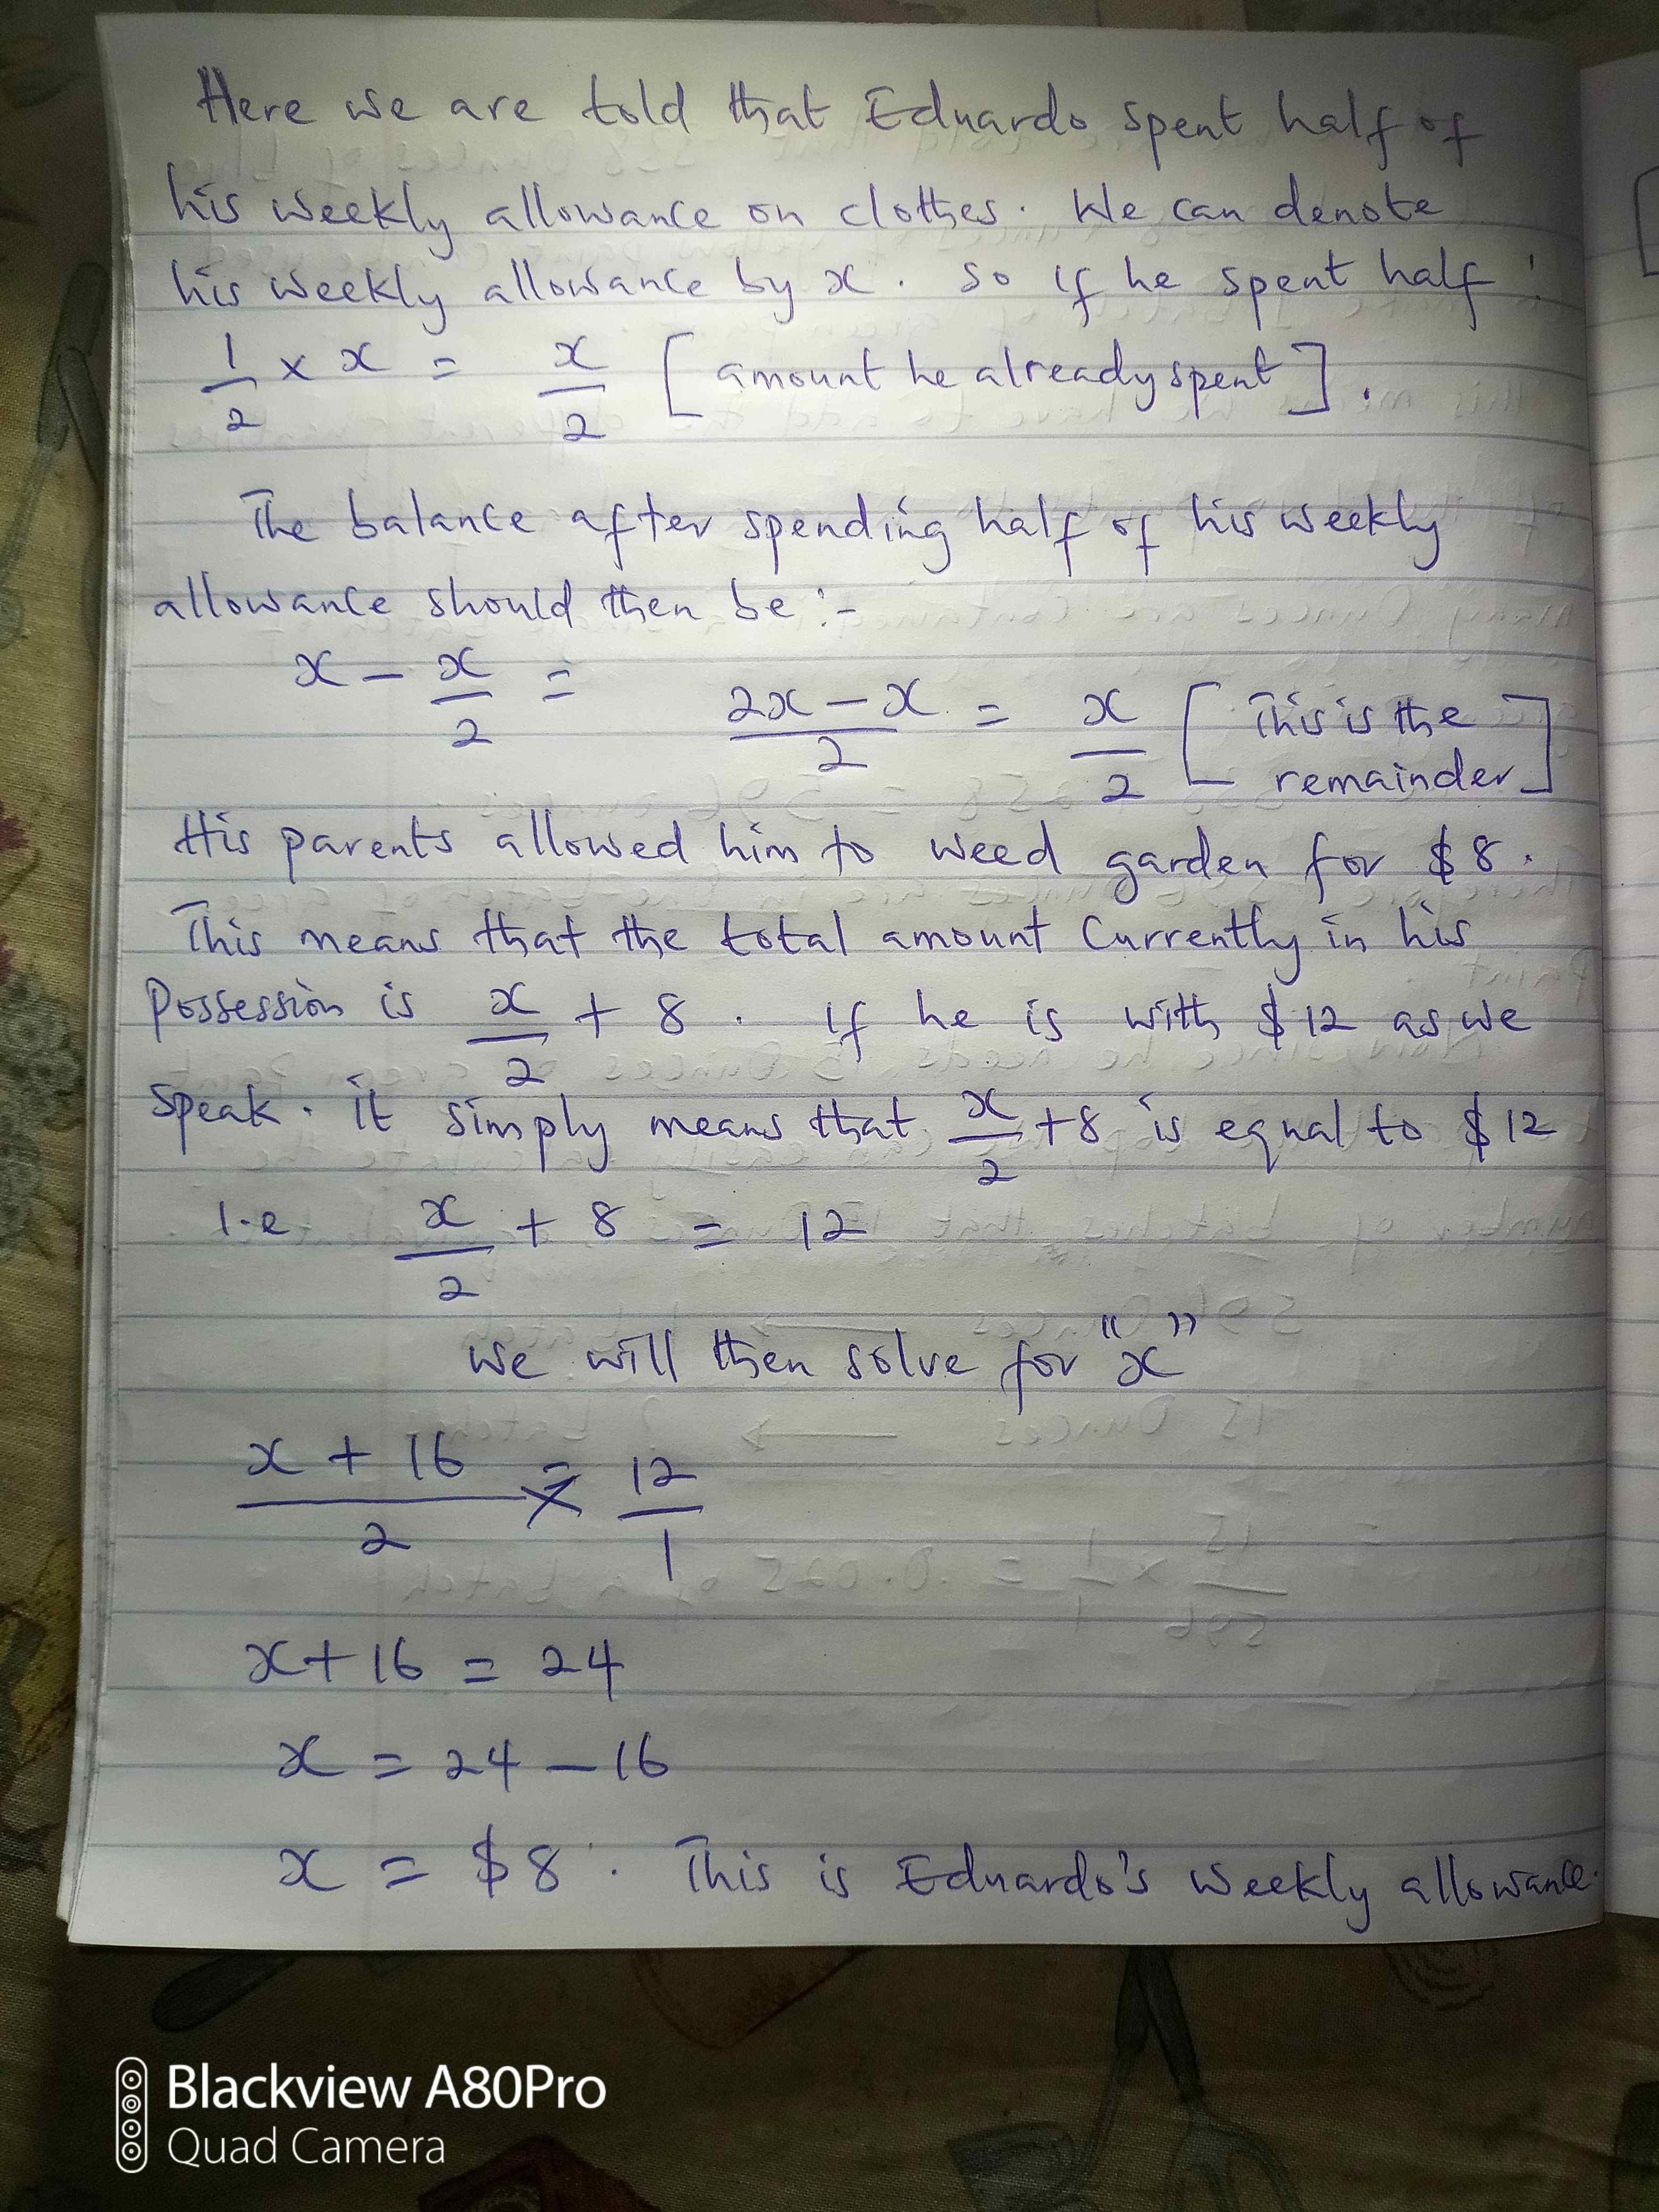 Here we are told that Eduardo spent half of
his weekly allowance on clothes. We can denote
his weekly allowance by x. So if he spent half:
1/2 × x = x/2 [amount he already spent].
The balance after spending half of his weekly
allowance should then be:-
x - x/2 = (2x - x)/2 = x/2 [This is the remainder]
His parents allowed him to weed garden for $8.
This means that the total amount Currently in his
Possession is x/2 + 8. if he is with $12 as we
speak. it simply means that x/2 + 8 is equal to $12
I.e x/2 + 8 = 12
We will then solve for "x"
(x + 16)/2 = 12/1
x + 16 = 24
x = 24 - 16
x = $8. This is Eduardo's weekly allowance.
Blackview A80Pro
Quad Camera